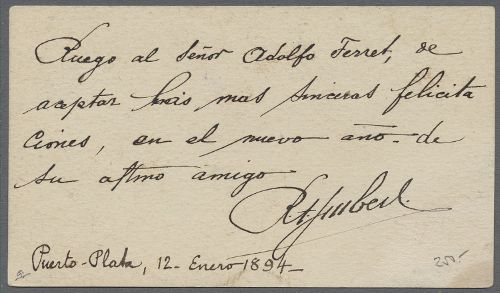 Ruego al Señor Adolfo Ferret, de
aceptar mis mas sinceras felicita
ciones, en el nuevo año - de
su afttmo amigo
Imbert
Puerto-Plata, 12- Enero 1894_